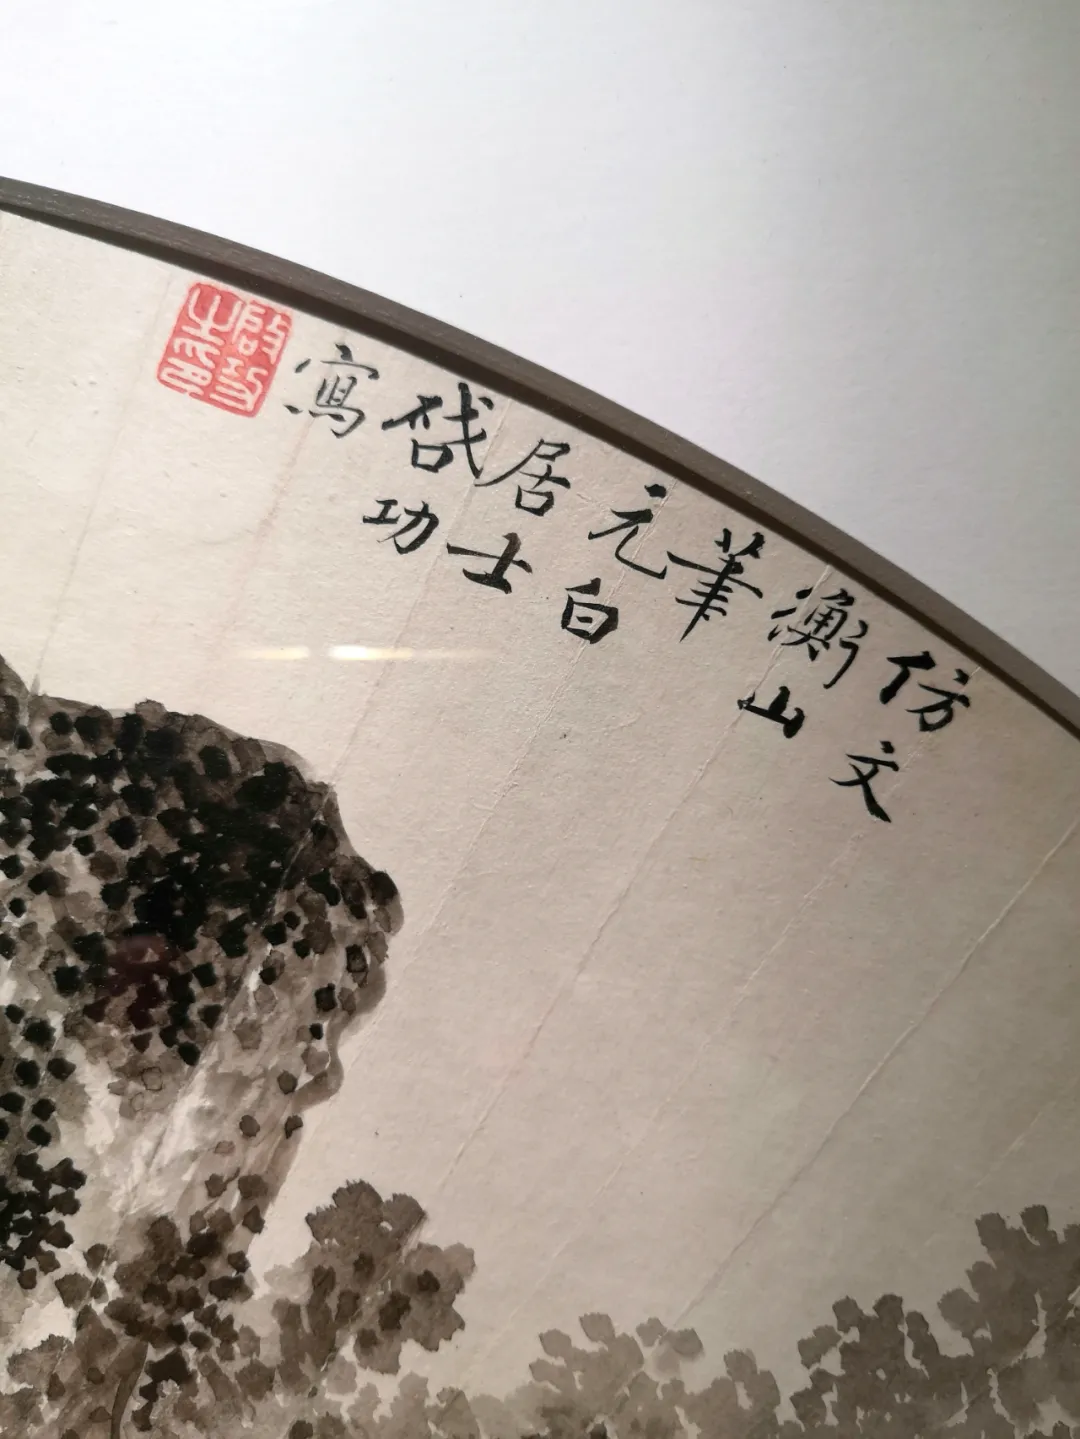 仿文
衡山
筆
元白
居士
啓功
寫
啓功